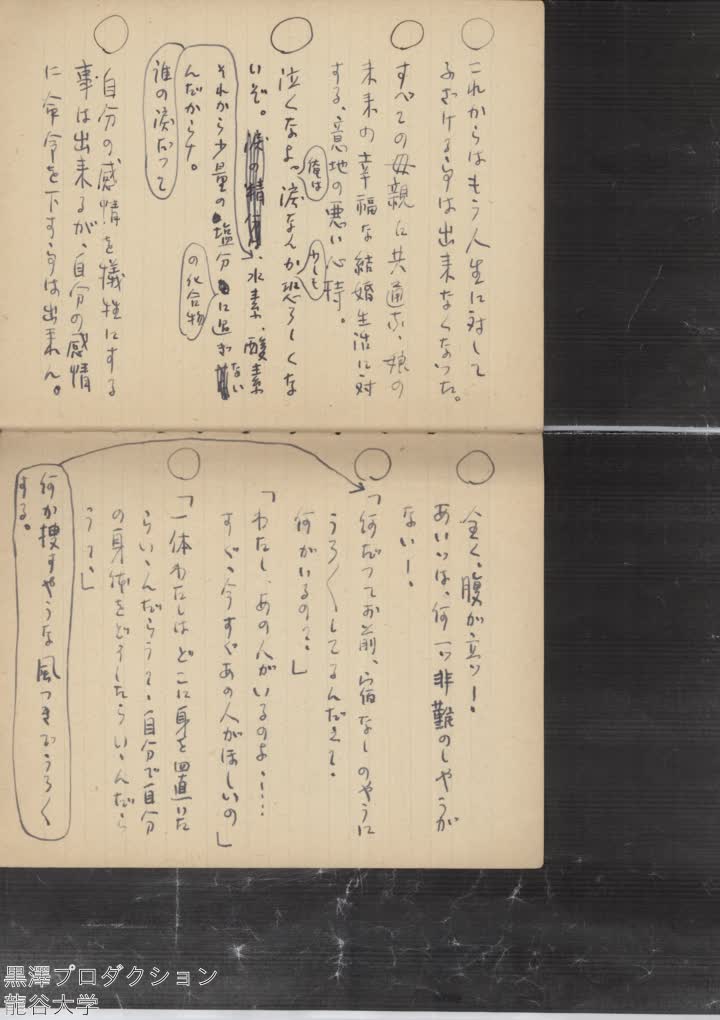 ○ これからはもう人生に対して
ふざける事は出来なくなった。
○ すべての母親に共通な、娘の
未来の幸福な結婚生活に対
する、意地の悪い心持。
○ 泣くなよ。涙なんか恐ろしくな
俺は
少しも
いぞ。涙の精分は、水素、酸素
それから少量の塩分に過ぎない
の化合物
んだからナ。
誰の涙だって
○ 自分の感情を犠牲にする
事は出来るが、自分の感情
に命令を下す事は出来ん。
○ 全く、腹が立つ!。
あいつは、何一つ非難のしやうが
ない!。
○ 「何だつてお前、宿なしのやうに
うろ〱してるんだえ?。
何がいるの?。」
「わたし、あの人がいるのよ、……
すぐ、今すぐあの人がほしいの」
○ 「一体わたしはどこに身を置いた
らいゝんだらう?、自分で自分
の身体をどうしたらいゝんだら
う?。」
何か捜すやうな風つきでうろ〱
する。
黒澤プロダクション
龍谷大学